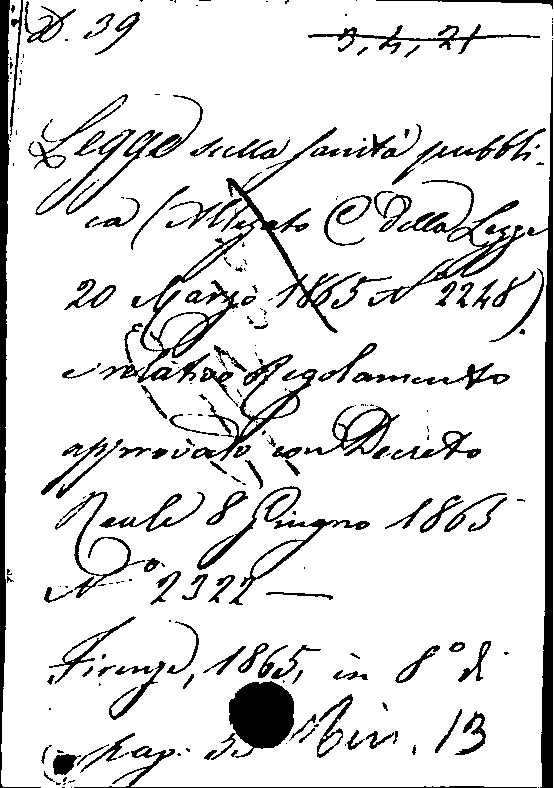 D. 39 3, 4, 21
Legge sulla sanità pubbli-
ca (Allegato C della Legge
20 Marzo 1865 Nº 2248)
e relativo Regolamento
approvato con Decreto
Reale 8 Giugno 1865
Nº 2322 —
Firenze, 1865, in 8º di
pag. 55 Min. 13